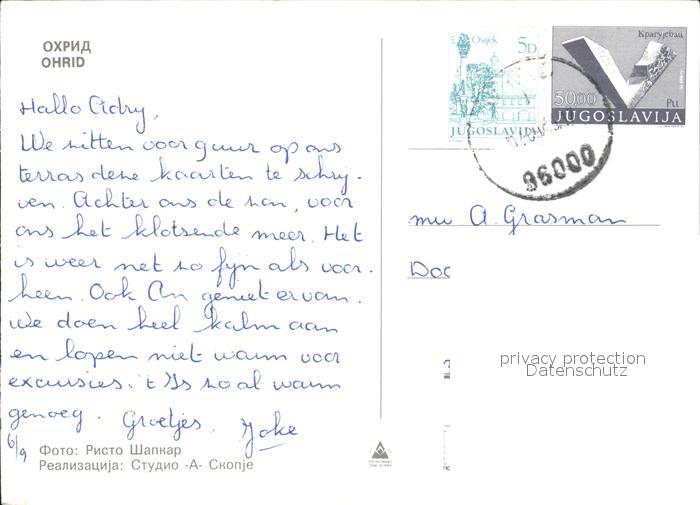 ОХРИД
OHRID
Hallo Adry,
We zitten voor guur op ons
terras deze kaarten te schrij-
ven. Achter ons de zon, voor
ons het klotsende meer. Het
is weer net zo fijn als voor-
heen. Ook An geniet ervan.
We doen heel kalm aan
en lopen niet warm voor
excursies. 't Is zo al warm
genoeg. Groetjes. Joke
6/9
Фото: Ристо Шапкар
Реализација: Студио -А- Скопје
Osijek
5D
JUGOSLAVIJA
Крагујевац
50.00
JUGOSLAVIJA
96000
mw A. Grasman
Doc
privacy protection
Datenschutz